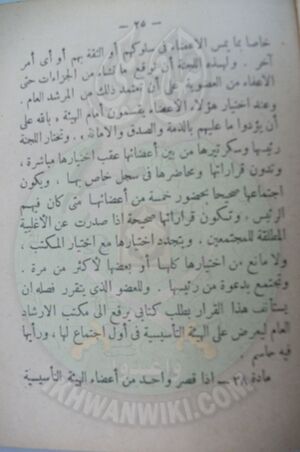 — ٢٥ —
خاصا بما يمس الأعضاء فى سلوكهم أو الثقة بهم أو أى أمر
آخر . ولهذه اللجنة أن توقع ما تشاء من الجزاءات حتى
الاعفاء من العضوية على أن تعتمد ذلك من المرشد العام .
وعند اختيار هؤلاء الأعضاء يقسمون أمام الهيئة ، بالله على
أن يؤدوا ما عليهم بالذمة والصدق والامانة . وتختار اللجنة
رئيسها وسكرتيرها من بين أعضائها عقب اختيارها مباشرة ،
وتدون قراراتها ومحاضرها فى سجل خاص بها . ويكون
اجتماعها صحيحا بحضور خمسة من أعضائها متى كان فيهم
الرئيس ، وتكون قراراتها صحيحة اذا صدرت عن الأغلبية
المطلقة للمجتمعين . ويتجدد اختيارها مع اختيار المكتب ،
ولا مانع من اختيارها كلها أو بعضها لأكثر من مرة .
وتجتمع بدعوة من رئيسها . وللعضو الذى يتقرر فصله ان
يستأنف هذا القرار بطلب كتابى يرفع الى مكتب الارشاد
العام ليعرض على الهيئة التأسيسية فى أول اجتماع لها ، ورأيها
فيه حاسم
مادة ٣٨ — اذا قصر واحد من أعضاء الهيئة التأسيسية
IKHWANWIKI.COM